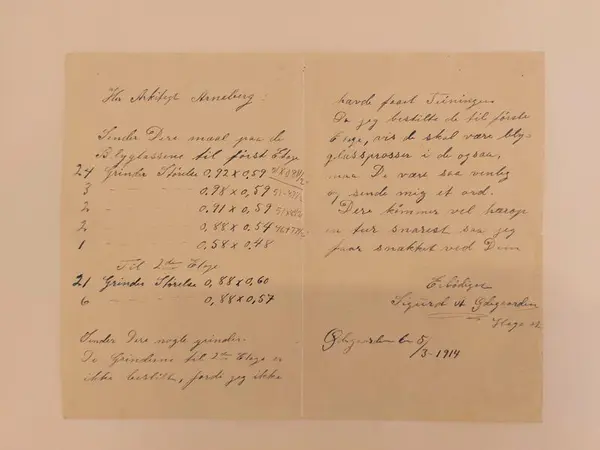 Hr Arkitegt Arneberg.
Sender Dere maal paa de
Blyglassene til först Etage
24 Grinder Störelse 0,92 x 0,59
3 — — — 0,98 x 0,59
2 — — — 0,91 x 0,59
2 — — — 0,88 x 0,54
1 — — — 0,58 x 0,48
Til 2den Etage
21 Grinder Störelse 0,88 x 0,60
6 — — — 0,88 x 0,57
Sender Dere nogle grinder.
De Grinderne til 2den Etage er
ikke bestilte, fordi jeg ikke
havde faaet Teiningen
Da jeg bestilte de til förste
Etage, vis de skal være bly-
glassprosser i de ogsaa,
maa De være saa venlig
og sende mig et ord.
Dere kommer vel herop
en tur snarest saa jeg
faar snakket ved Dem
Erbödigst
Sigurd A
5/
/3-1914